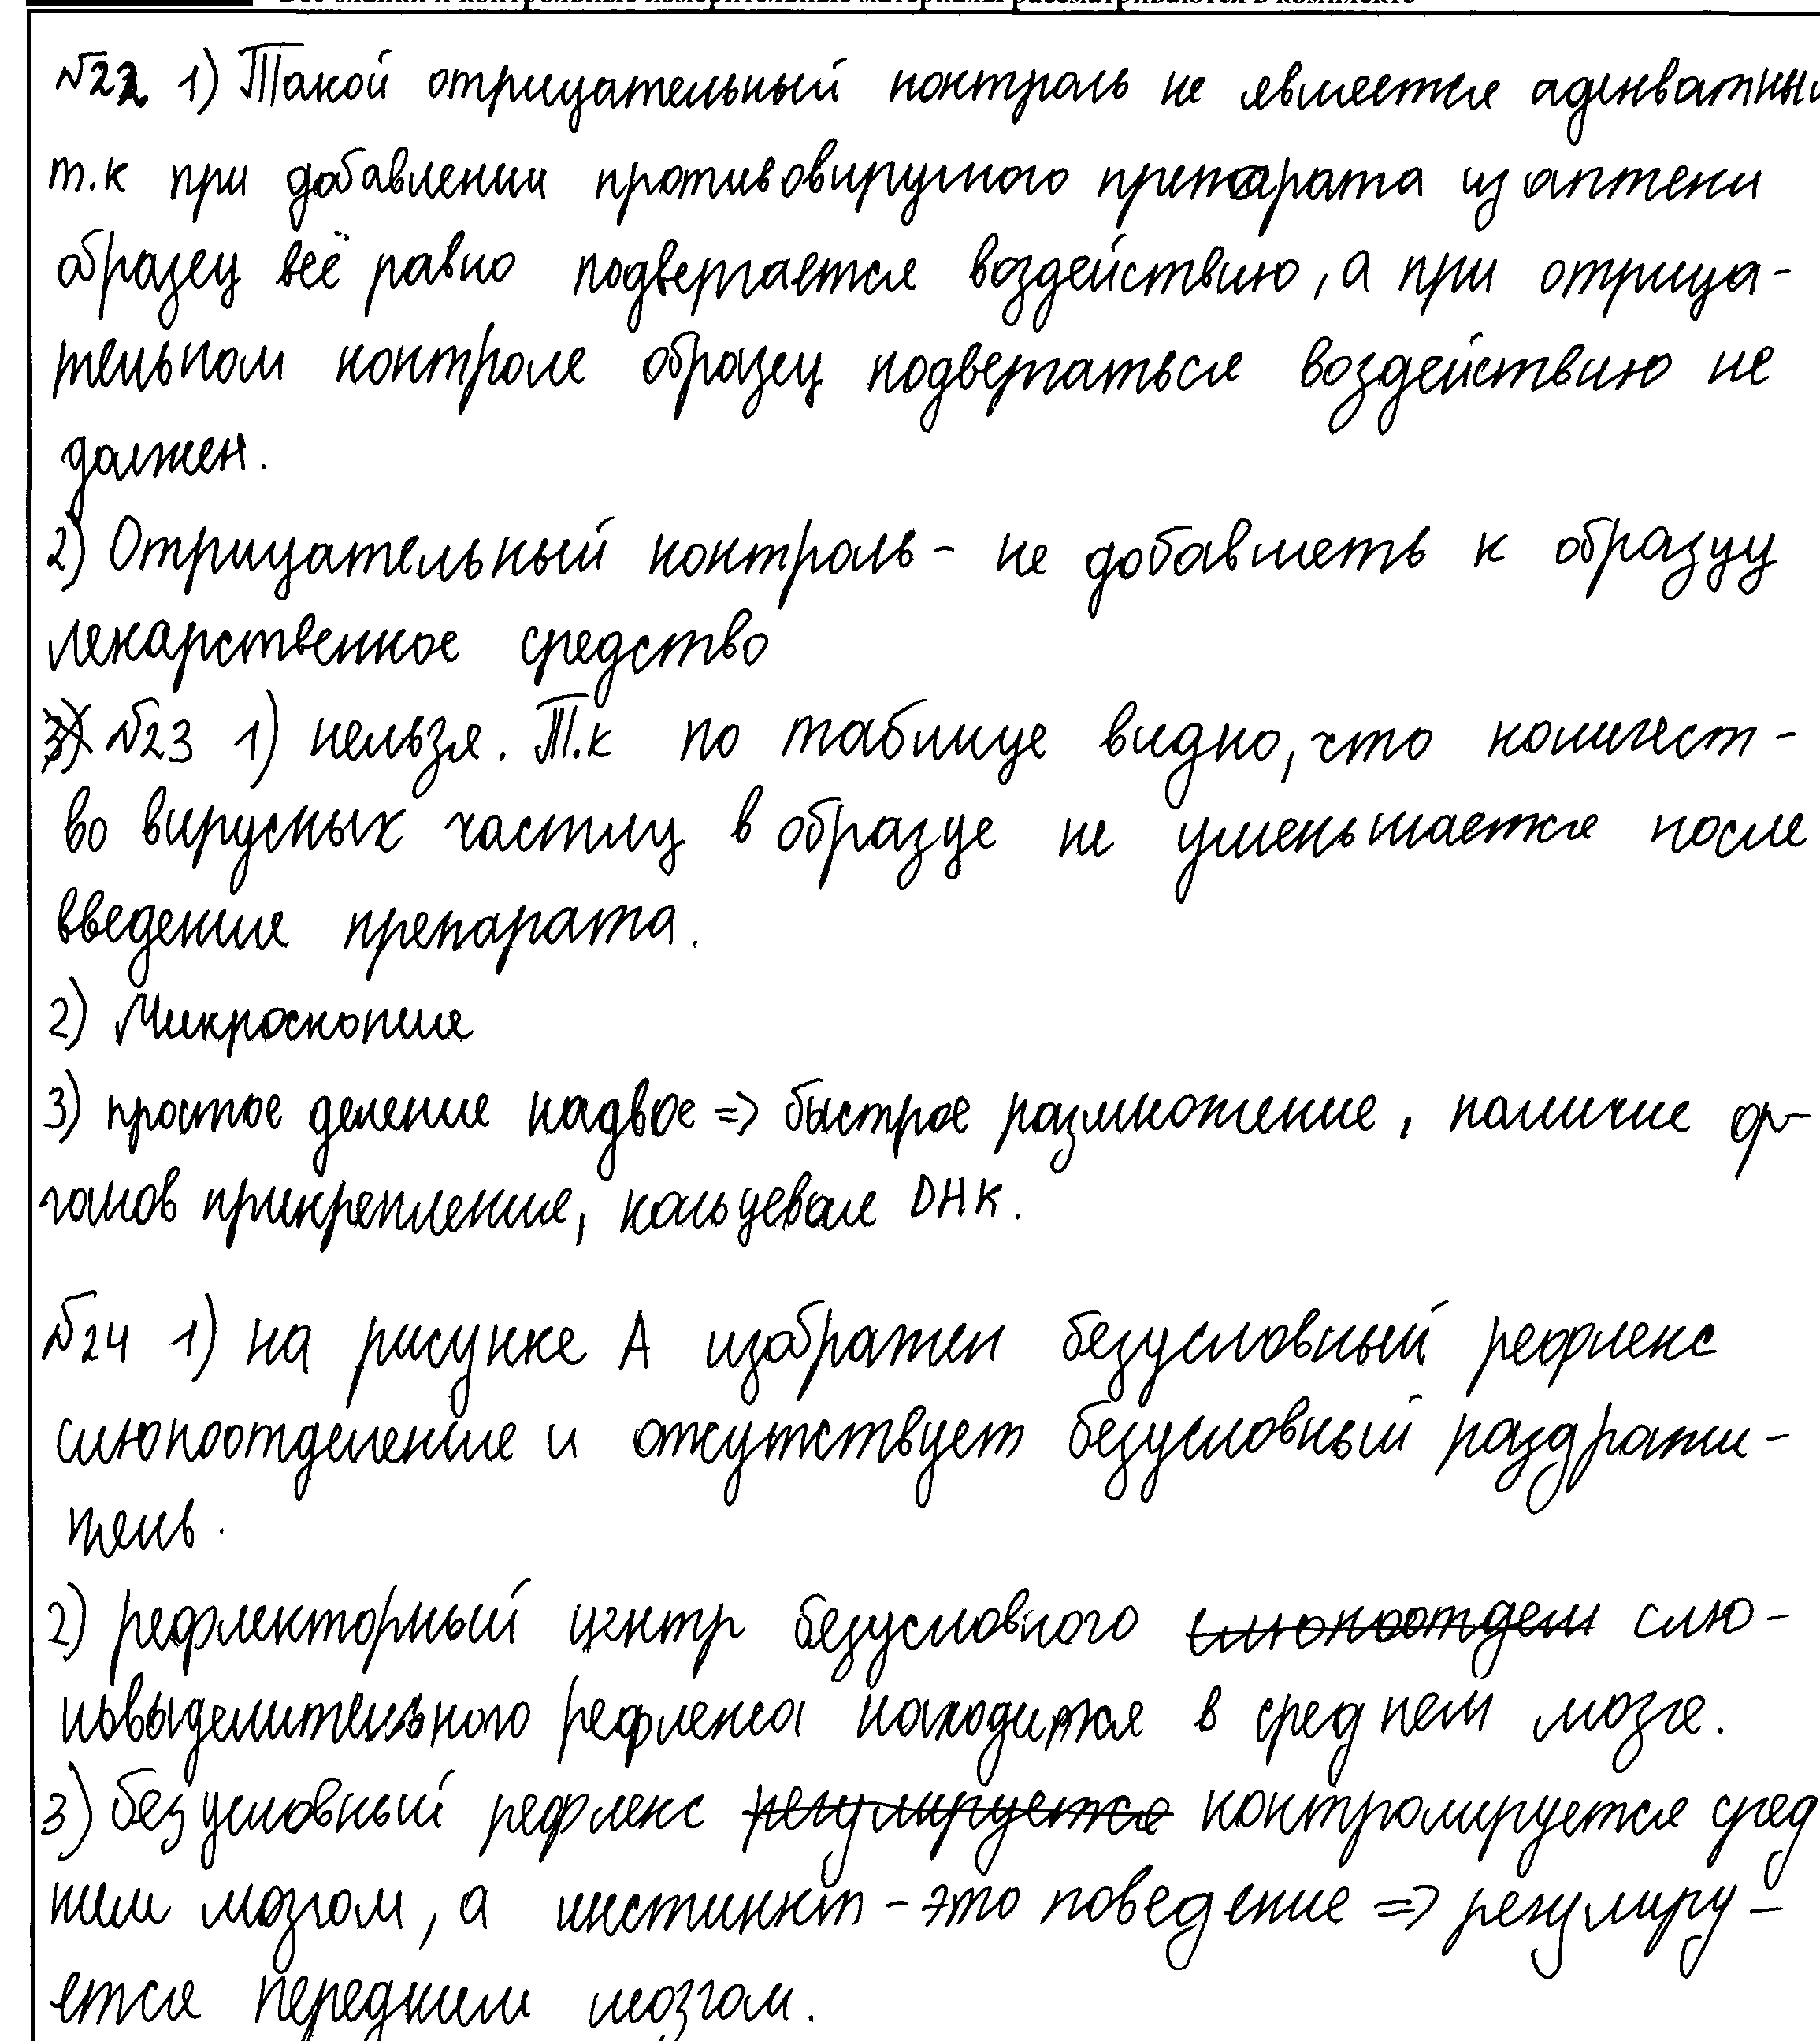 Все бланки и контрольные измерительные материалы рассматриваются в комплекте
№22 1) Такой отрицательный контроль не является адекватным
т.к при добавлении противовирусного препарата из аптеки
образец всё равно подвергается воздействию, а при отрица-
тельном контроле образец подвергаться воздействию не
должен.
2) Отрицательный контроль - не добавлять к образцу
лекарственное средство
3) №23 1) нельзя. Т.к по таблице видно, что количест-
во вирусных частиц в образце не уменьшается после
введения препарата.
2) Микроскопия
3) простое деление надвое => быстрое размножение, наличие ор-
ганов прикрепления, кольцевая ДНК.
№24 1) на рисунке А изображен безусловный рефлекс
слюноотделение и отсутствует безусловный раздражи-
тель.
2) рефлекторный центр безусловного слюноотдел слю-
новыделительного рефлекса находится в среднем мозге.
3) безусловный рефлекс регулируется контролируется сред
ним мозгом, а инстинкт - это поведение => регулиру-
ется передним мозгом.